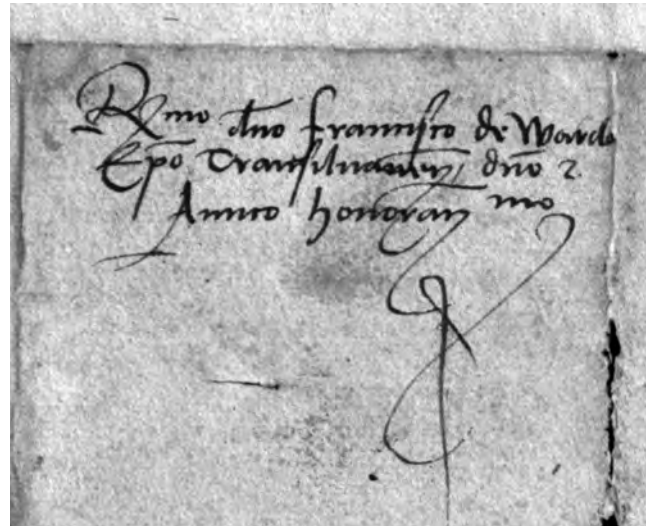 Rmo dno francisco de Warda
Epo Transiluanen dno 2
Amico honoran mo